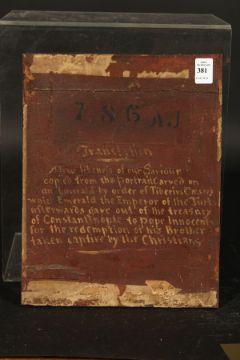 381
786 AJ
Translation
A True likeness of our Saviour
copied from the Portrait Carved on
an Emerald by order of Tiberius Caesar
which Emerald the Emperor of the Turks
afterwards gave out of the treasury
of Constantinople to Pope Innocent
for the redemption of his Brother
taken captive by the Christians